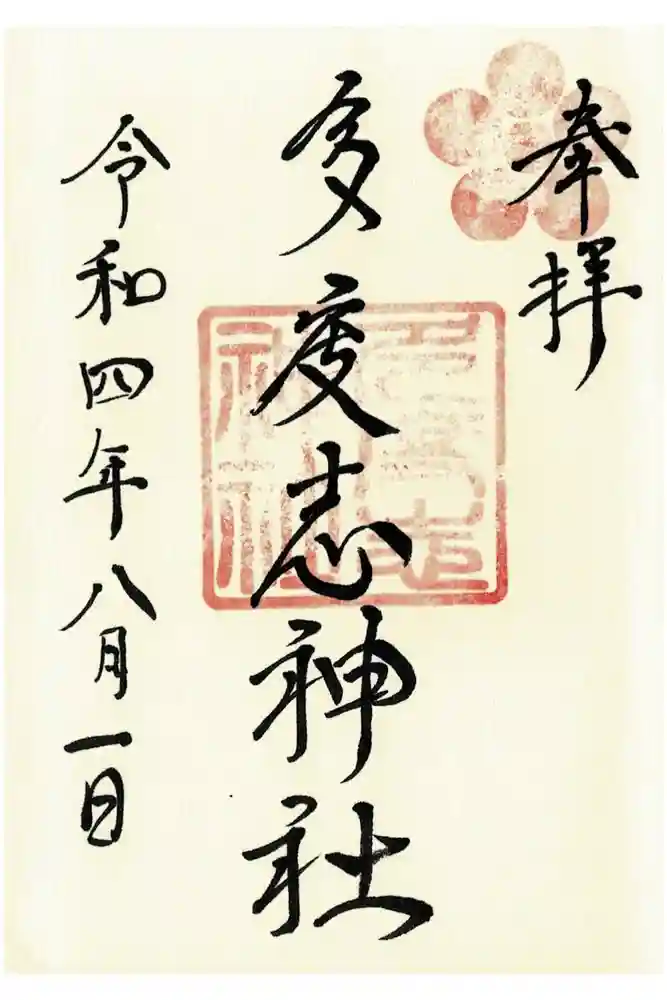 奉拝
多度志神社
令和四年八月一日